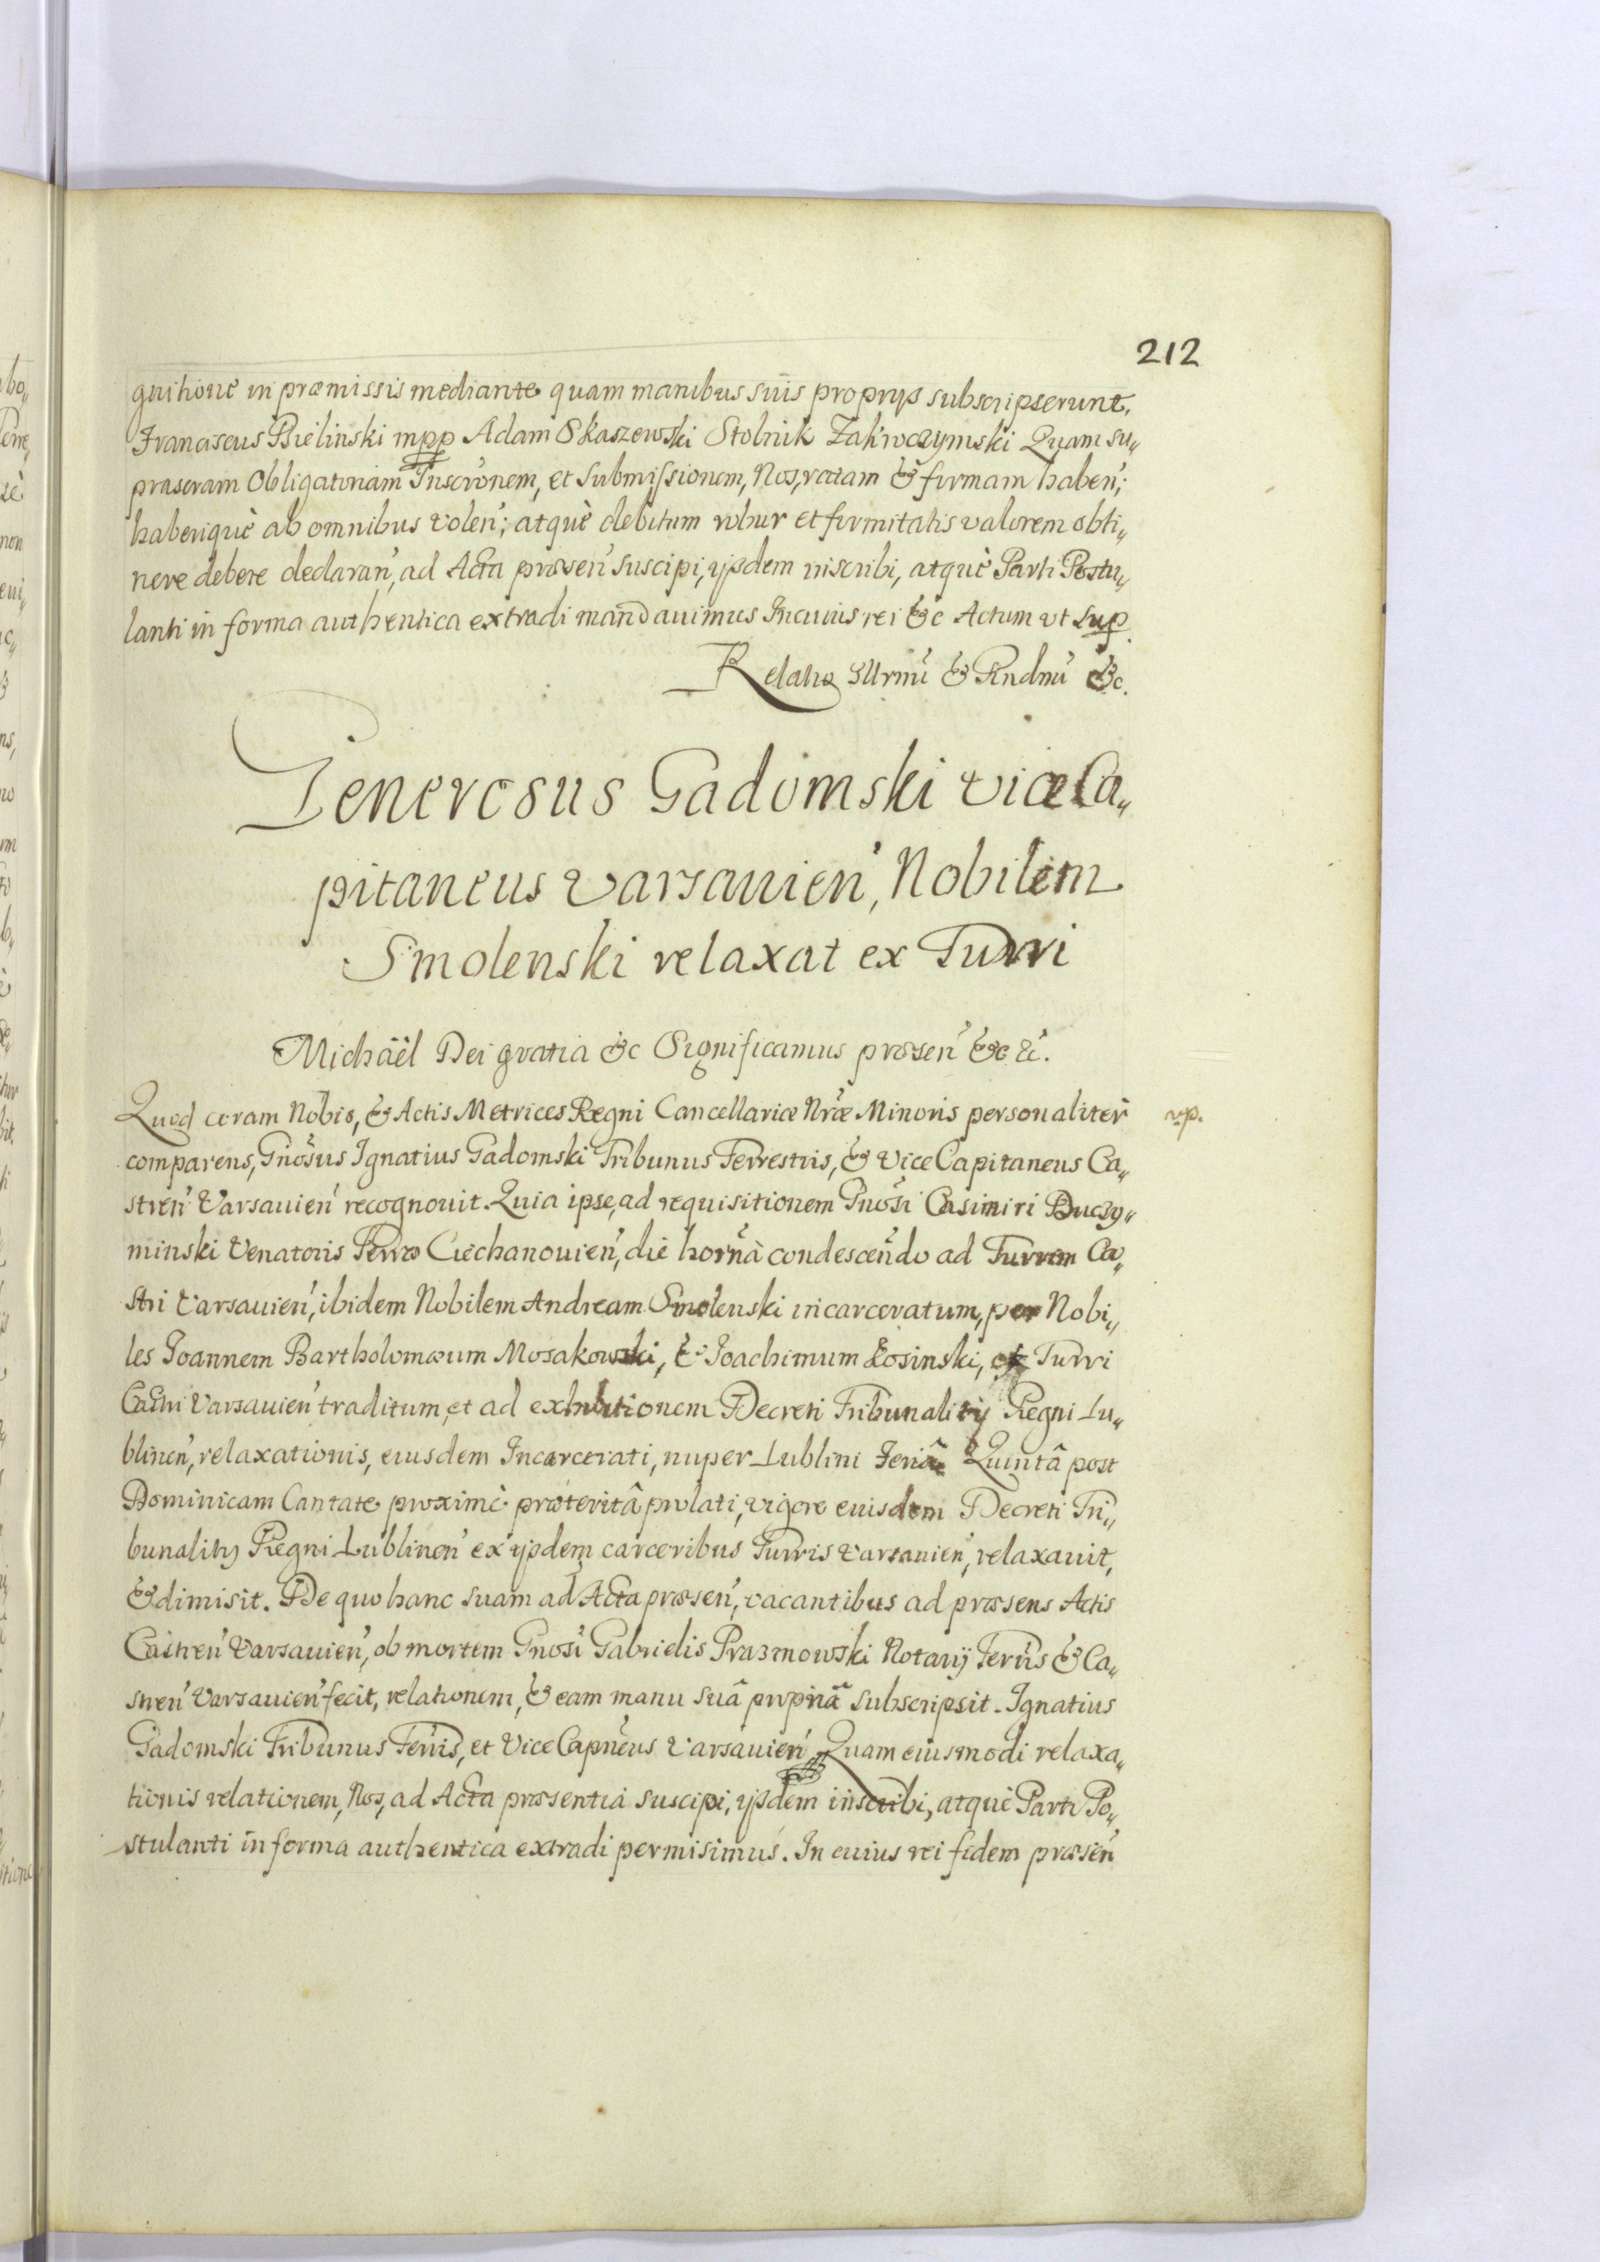 212
gnitione in præmissis mediante quam manibus suis proprijs subscripserunt.
Franciscus Bielinski mpp Adam Skaszewski Stolnik Zakroczymski Quam su„
prascram Obligatoriam Inscronem, et Submissionem, Nos, ratam & firmam haben';
haberique ab omnibus volen'; atquè debitum robur et firmitatis valorem obti„
nere debere declaran', ad Acta præsen' suscipi, ijsdem inscribi, atquè Parti Postu„
lanti in forma authentica extradi mandauimus In cuius rei &c Actum vt sup.
Relatio Illrmi & Rndmi &c.
Generosus Gadomski ViceCa„
pitaneus Varsauien', Nobilem
Smolenski relaxat ex Turri
Michäel Dei gratia &c Significamus præsen' &c &.
Quod coram Nobis, & Actis Metrices Regni Cancellariæ Nræ Minoris personaliter
vp.
comparens, Gnosus Ignatius Gadomski Tribunus Terrestris, & Vice Capitaneus Ca„
stren' Varsauien' recognouit. Quia ipse, ad requisitionem Gnosi Casimiri Duczy„
minski Venatoris Terræ Ciechanouien', die hornà condescendo ad Turrem Ca„
stri Varsauien', ibidem Nobilem Andream Smolenski incarceratum, per Nobi„
les Joannem Bartholomæum Mosakowski, & Joachimum Łosinski, Turri
Castri Varsauien' traditum, et ad exhibitionem Decreti Tribunalitij Regni Lu„
blinen', relaxationis, eiusdem Incarcerati, nuper Lublini Feriâ Quintâ post
Dominicam Cantate proximè præteritâ prolati, vigore eiusdem Decreti Tri„
bunalitij Regni Lublinen' ex ijsdem carceribus Turris Varsauien', relaxauit,
& dimisit. De quo hanc suam ad Acta præsen', vacantibus ad præsens Actis
Castren' Varsauien', ob mortem Gnosi Gabrielis Prazmowski Notarij Terris & Ca„
stren' Varsauien' fecit, relationem, & eam manu suâ propriâ subscripsit. Ignatius
Gadomski Tribunus Terris, et Vice Capneus Varsauien' Quam eiusmodi relaxa„
tionis relationem, Nos, ad Acta præsentia suscipi, ijsdem inscribi, atquè Parti Po„
stulanti in forma authentica extradi permisimus. In cuius rei fidem præsen'